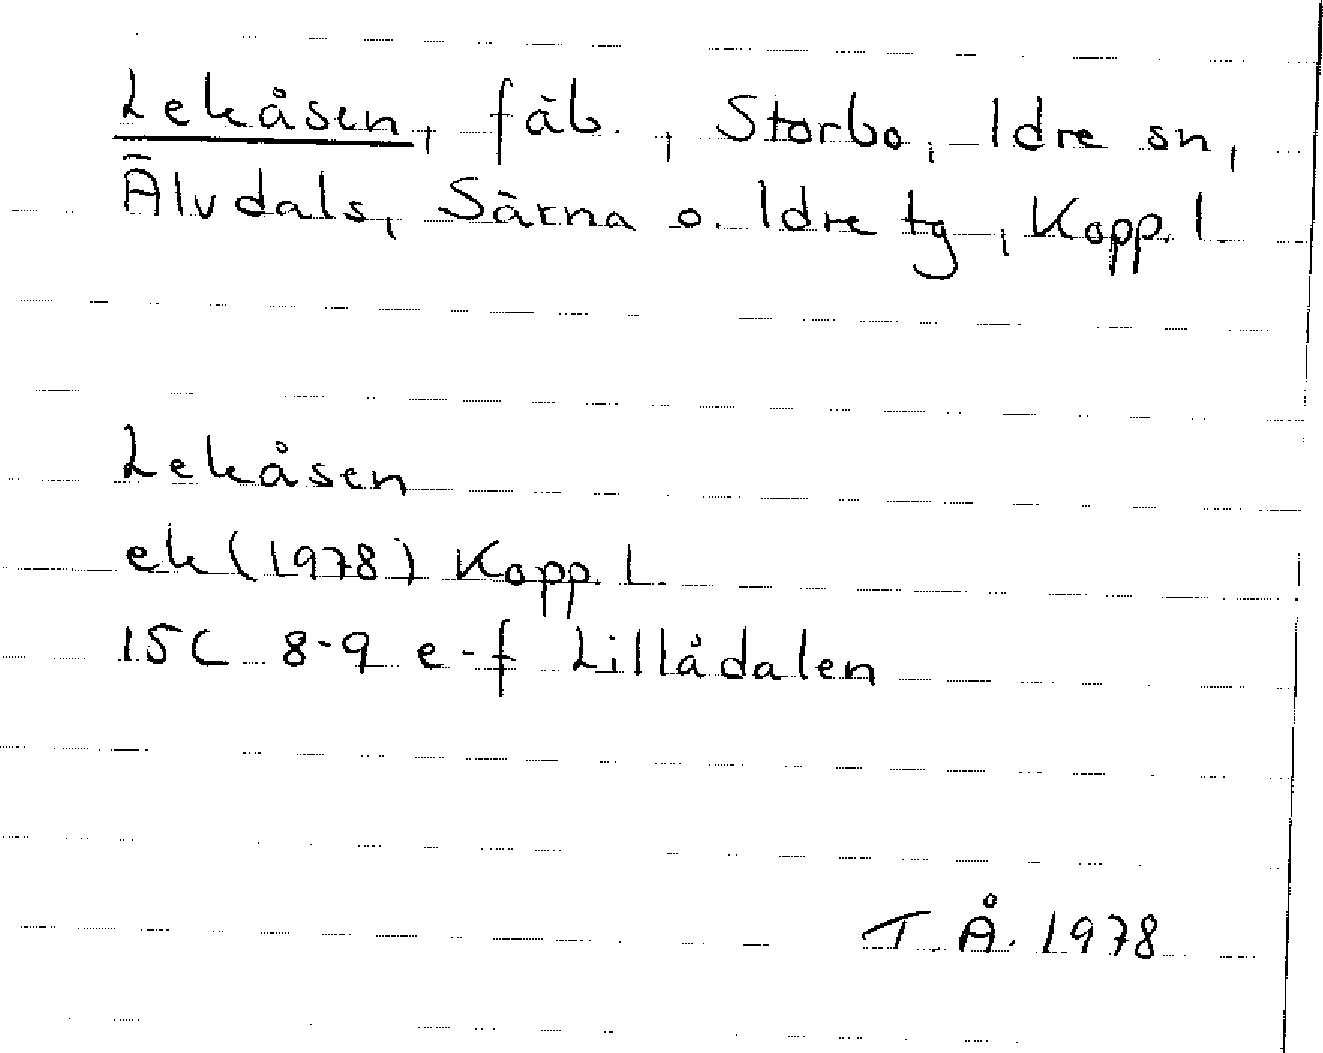 Lekåsen, fäb., Storbo, Idre sn,
Älvdals, Särna o. Idre tg, Kopp. l
Lekåsen
ek (1978) Kopp. L.
15C 8-9 e-f Lillådalen
T. Å. 1978